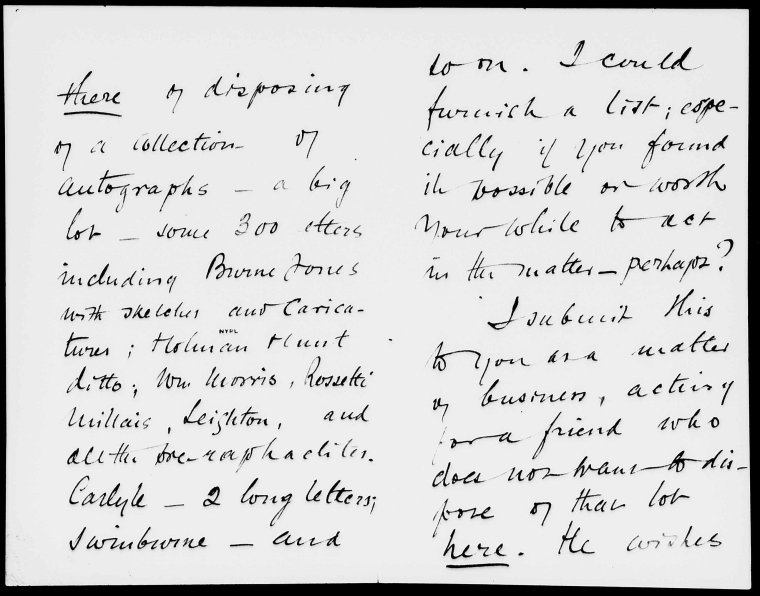 there of disposing
of a collection of
autographs – a big
lot – some 300 etters
including Burne Jones
with sketches and Carica-
tures ; Holman Hunt
NYPL
ditto ; Wm Morris, Rossetti
Millais, Leighton, and
all the pre-raphaelites.
Carlyle – 2 long letters;
Swinburne – and
so on. I could
furnish a list; espe-
cially if you found
it possible or worth
your while to act
in the matter – perhaps?
I submit this
to you as a matter
of business, acting
for a friend who
does not want to dis-
pose of that lot
here. He wishes